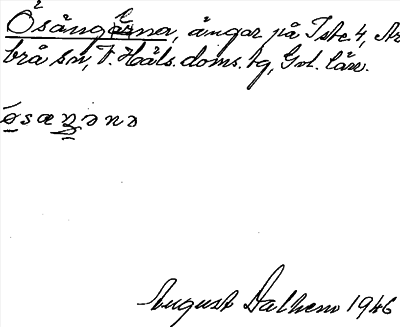 Ösångerna, ångar på Iste 4, Ar
brå sn, F. Håls. doms. tg, Gvl. län.
ø s æ ŋ ə n ə
August Dalhem 1946